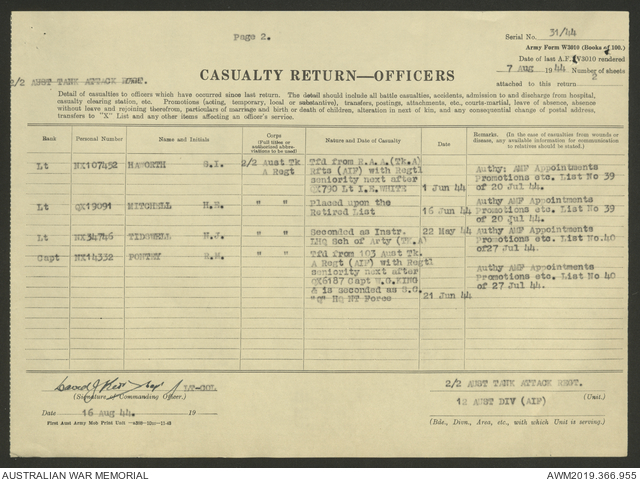 Page 2.
Serial No. 31/44
Army Form W3010 (Books of 100.)
Date of last A.F. W3010 rendered
7 Aug 1944 Number of sheets
2/2 AUST TANK ATTACK REGT. 2
attached to this return
CASUALTY RETURN—OFFICERS
Detail of casualties to officers which have occurred since last return. The detail should include all battle casualties, accidents, admission to and discharge from hospital,
casualty clearing station, etc. Promotions (acting, temporary, local or substantive), transfers, postings, attachments, etc., courts-martial, leave of absence, absence
without leave and rejoining therefrom, particulars of marriage and birth or death of children, alteration in next of kin, and any consequential change of postal address,
transfers to "X" List and any other items affecting an officer's service.
Rank Personal Number Name and Initials Corps (Full titles or authorized abbreviations to be used) Nature and Date of Casualty Remarks. (In the case of casualties from wounds or disease, any available information for communication to relatives should be stated.)
Lt NX107452 HAWORTH S.I. 2/2 Aust Tk Tfd from R.A.A.(Tk.A)
A Regt Rfts (AIF) with Regtl Authy: AMF Appointments
seniority next after Promotions etc. List No 39
QX790 Lt I.H.WHITE 1 Jun 44 of 20 Jul 44.
Lt QX19091 MITCHELL H.E. " " Placed upon the Authy AMF Appointments
Retired List 16 Jun 44 Promotions etc. List No 39
of 20 Jul 44.
Lt NX34746 TIDSWELL N.J. " " Seconded as Instr. 22 May 44 Authy AMF Appointments
LHQ Sch of Arty (TK.A) Promotions etc. List No.40
of27 Jul 44.
Capt NX14332 R.M. " " Tfd from 103 Aust Tk.
A Regt (AIF) with Regtl
seniority next after Authy AMF Appointments
QX6187 Capt W.G.KING Promotions etc. List No 40
& is seconded as S.C. of 27 Jul 44.
"Q" HQ NT Force 21 Jun 44
LT-COL.
(Signature of Commanding Officer.)
2/2 AUST TANK ATTACK REGT.
(Unit.)
Date 16 Aug 44. 19
12 AUST DIV (AIF)
(Bde., Divn., Area, etc., with which Unit is serving.)
First Aust Army Mob Print Unit
AUSTRALIAN WAR MEMORIAL AWM2019.366.955